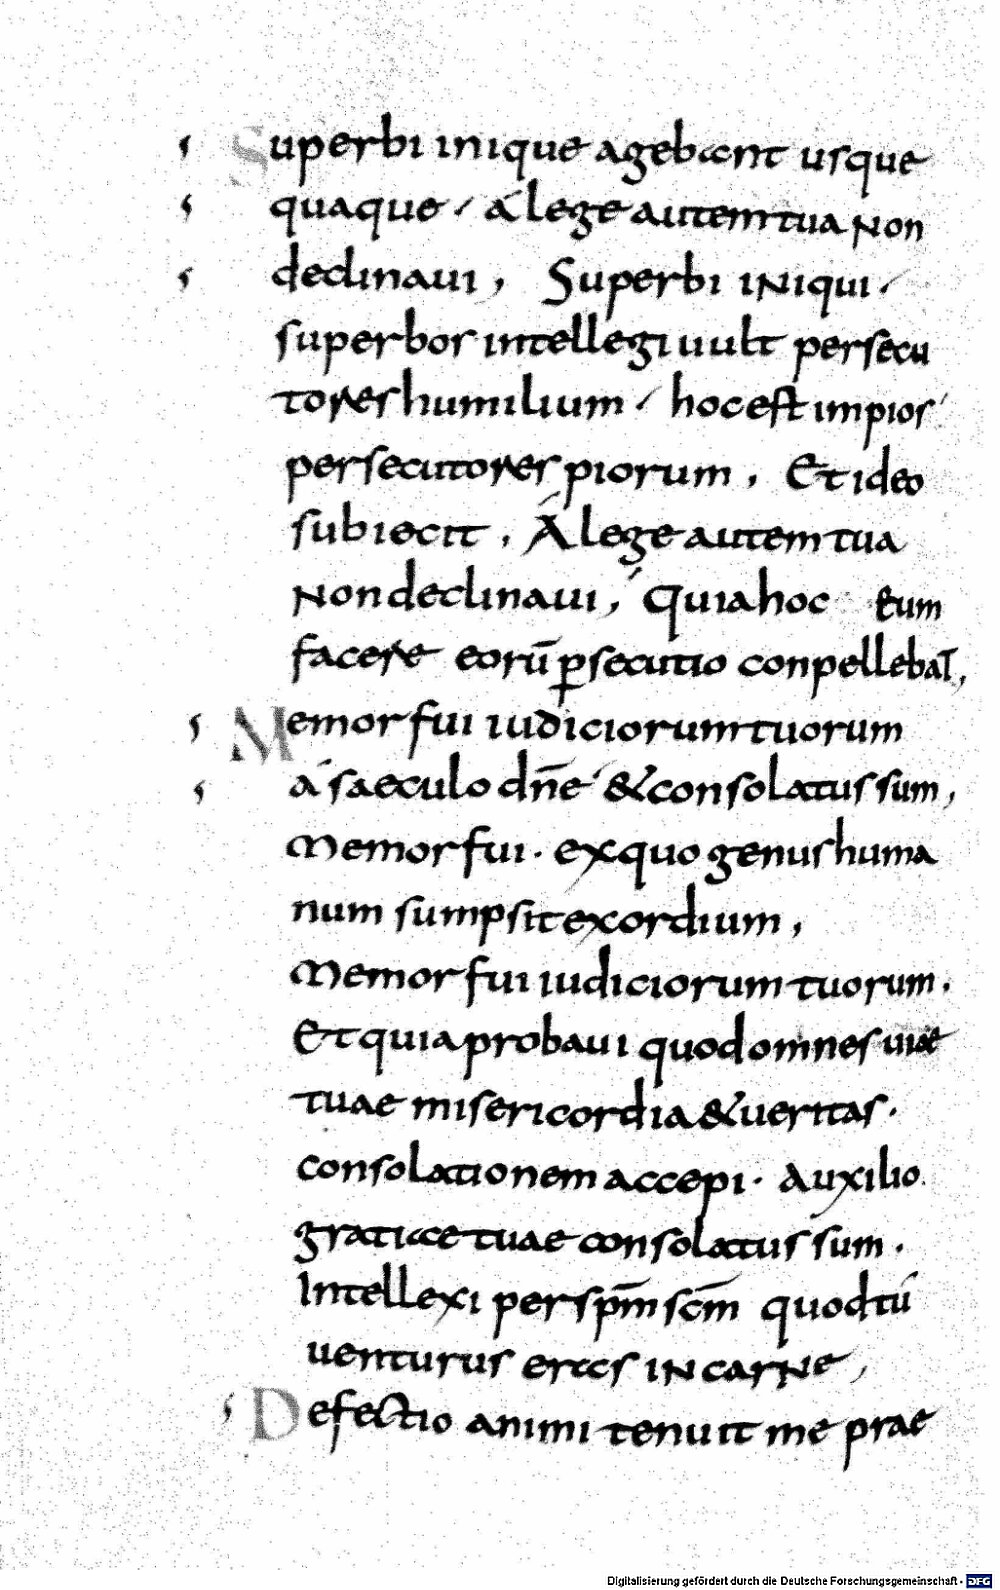 Superbi inique agebant usque
quaque · a lege autem tua Non
declinaui , Superbi iNiqui ·
superbos intellegi uult persecu
tores humilium · hoc est impios
persecutores piorum , Et ideo
subiecit , A lege autem tua
Non declinaui , Quia hoc eum
facere eorū p̱secutio conpellebat ,
Memor fui iudiciorum tuorum
a saeculo dn̄e & consolatus sum ,
Memor fui · ex quo genus huma
num sumpsit exordium ,
Memor fui iudiciorum tuorum .
Et quia probaui quod omnes uiae
tuae misericordia & ueritas ·
consolationem accepi · Auxilio
gratiae tuae consolatus sum ·
Intellexi per sp̄m sc̄m quod tu
uenturus eras iN carNe ,
Defectio animi tenuit me prae
Digitalisierung gefördert durch die Deutsche Forschungsgemeinschaft - DFG